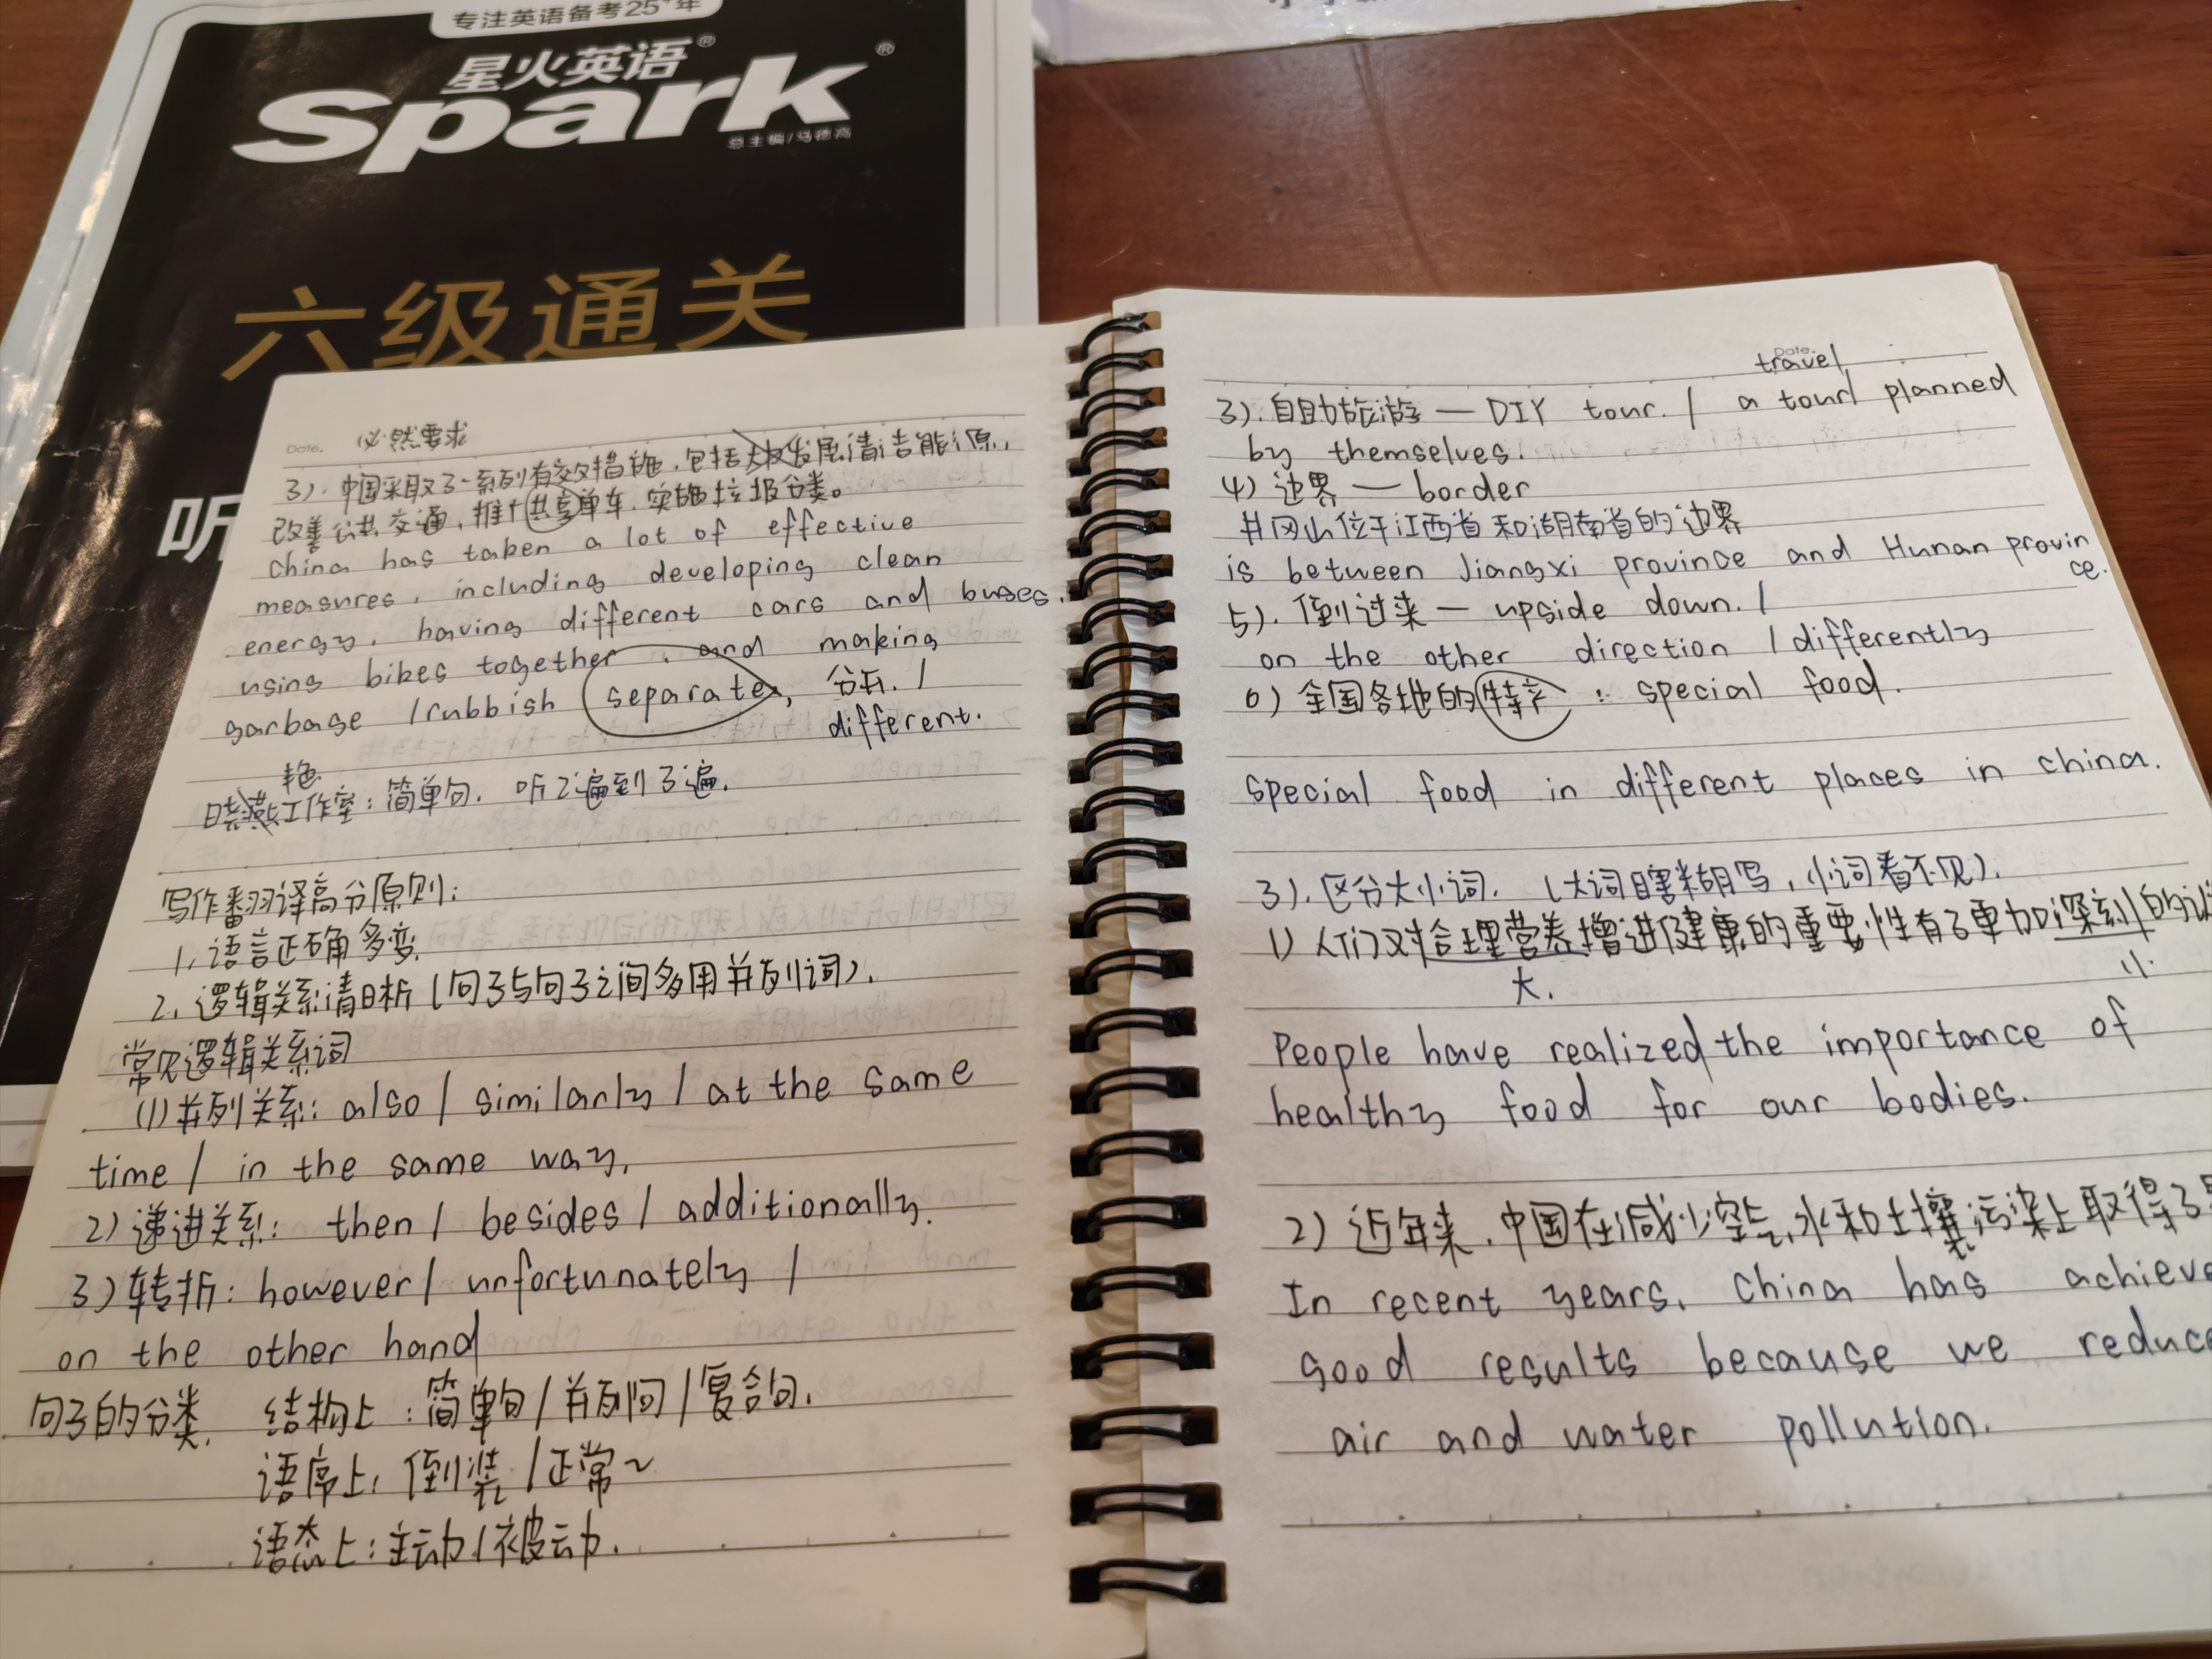 专注英语备考25+年
星火英语®
Spark®
总主编/马德高
六级通关
听
Date.
必然要求
3). 中国采取了一系列有效措施，包括发展清洁能源，
改善公共交通，推广共享单车，实施垃圾分类。
China has taken a lot of effective
measures, including developing clean
energy, having different cars and buses,
using bikes together, and making
garbage /rubbish separate, 分开. /
different.
艳
晓燕工作室：简单句，听2遍到3遍.
写作翻译高分原则：
1. 语言正确多变.
2. 逻辑关系清晰（句子与句子之间多用并列词）.
常见逻辑关系词
(1)并列关系：also / similarly / at the same
time / in the same way,
2) 递进关系：then / besides / additionally.
3) 转折：however / unfortunately /
on the other hand
句子的分类. 结构上：简单句 / 并列句 / 复合句.
语序上：倒装 / 正常~
语态上：主动 / 被动.
Date.
travel
3). 自助旅游 — DIY tour. / a tour planned
by themselves.
4) 边界 — border
井冈山位于江西省和湖南省的边界
is between Jiangxi province and Hunan provin
ce.
5). 倒过来 — upside down. /
on the other direction / differently
6) 全国各地的特产：special food.
special food in different places in china.
3). 区分大小词. (大词瞎糊写，小词看不见).
1) 人们对合理营养增进健康的重要性有了更加深刻的
大. 小.
People have realized the importance of
healthy food for our bodies.
2) 近年来，中国在减少空气、水和土壤污染上取得了
In recent years, China has achieve
good results because we reduce
air and water pollution.